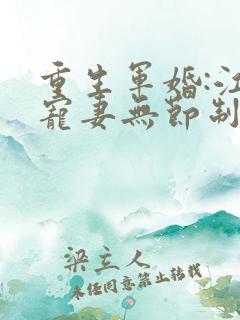 重生軍婚:江
寵妻無節制
梁三人
未任同意禁止轉載